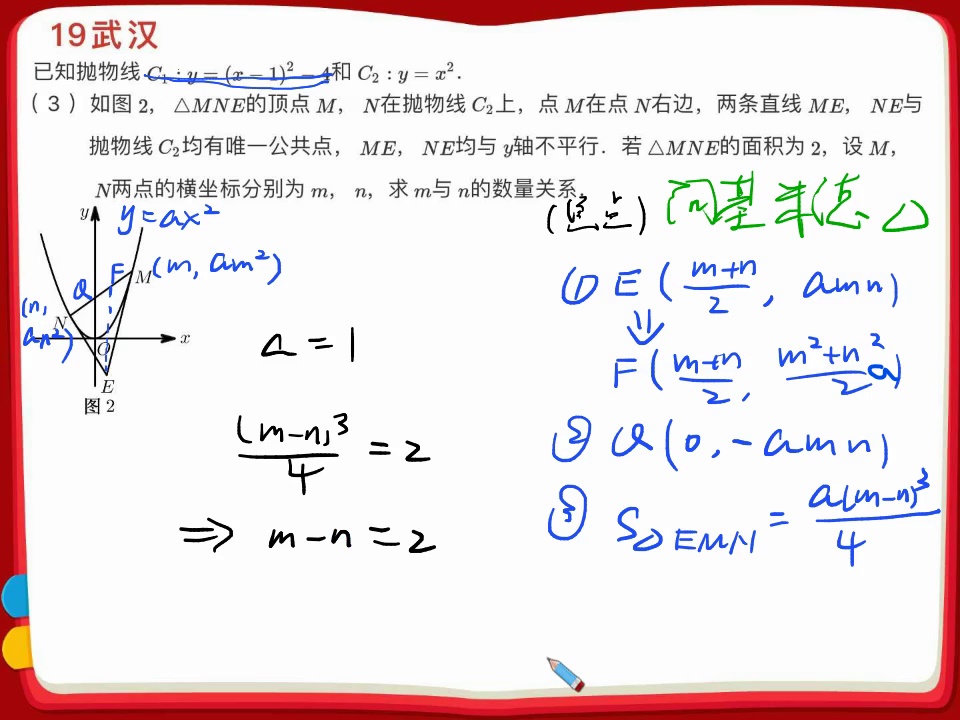 19武汉
已知抛物线 C₁ : y = (x − 1)² − 4和 C₂ : y = x².
(3) 如图 2, △MNE的顶点 M, N在抛物线 C₂上, 点 M在点 N右边, 两条直线 ME, NE与
抛物线 C₂均有唯一公共点, ME, NE均与 y轴不平行. 若 △MNE的面积为 2, 设 M,
N两点的横坐标分别为 m, n, 求 m与 n的数量关系.
y
y = ax²
阿基米德△
F
M
(m, am²)
Q
(n, an²)
N
O
x
E
图 2
a = 1
(m−n)³/4 = 2
⇒ m−n = 2
① E(m+n/2, amn)
⇓
F(m+n/2, m²+n²/2 a)
② Q(0, −amn)
③ S△EMN = a(m−n)³/4